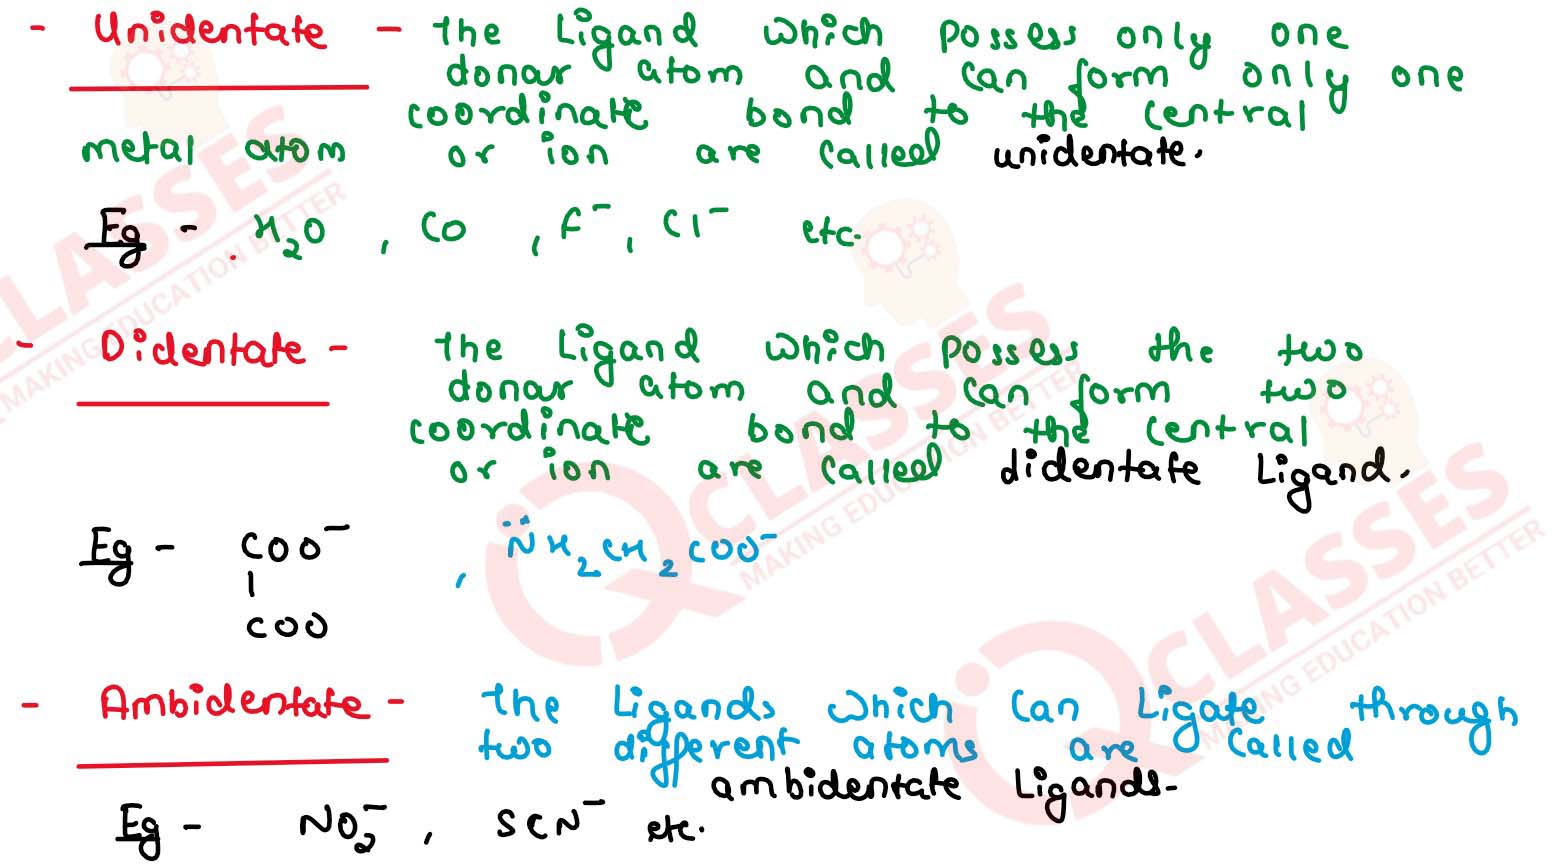 - Unidentate - the Ligand which possess only one
donar atom and can form only one
coordinate bond to the central
metal atom or ion are called unidentate.
Eg - H₂O , CO , F⁻, Cl⁻ etc.
- Didentate - the Ligand which possess the two
donar atom and can form two
coordinate bond to the central
or ion are called didentate Ligand.
Eg - COO⁻ , N̈H₂CH₂COO⁻
|
COO
- Ambidentate - the Ligands which can Ligate through
two different atoms are called
ambidentate Ligands.
Eg - NO₂⁻ , SCN⁻ etc.
CLASSES
MAKING EDUCATION BETTER
iQ CLASSES
MAKING EDUCATION BETTER
iQ CLASSES
MAKING EDUCATION BETTER